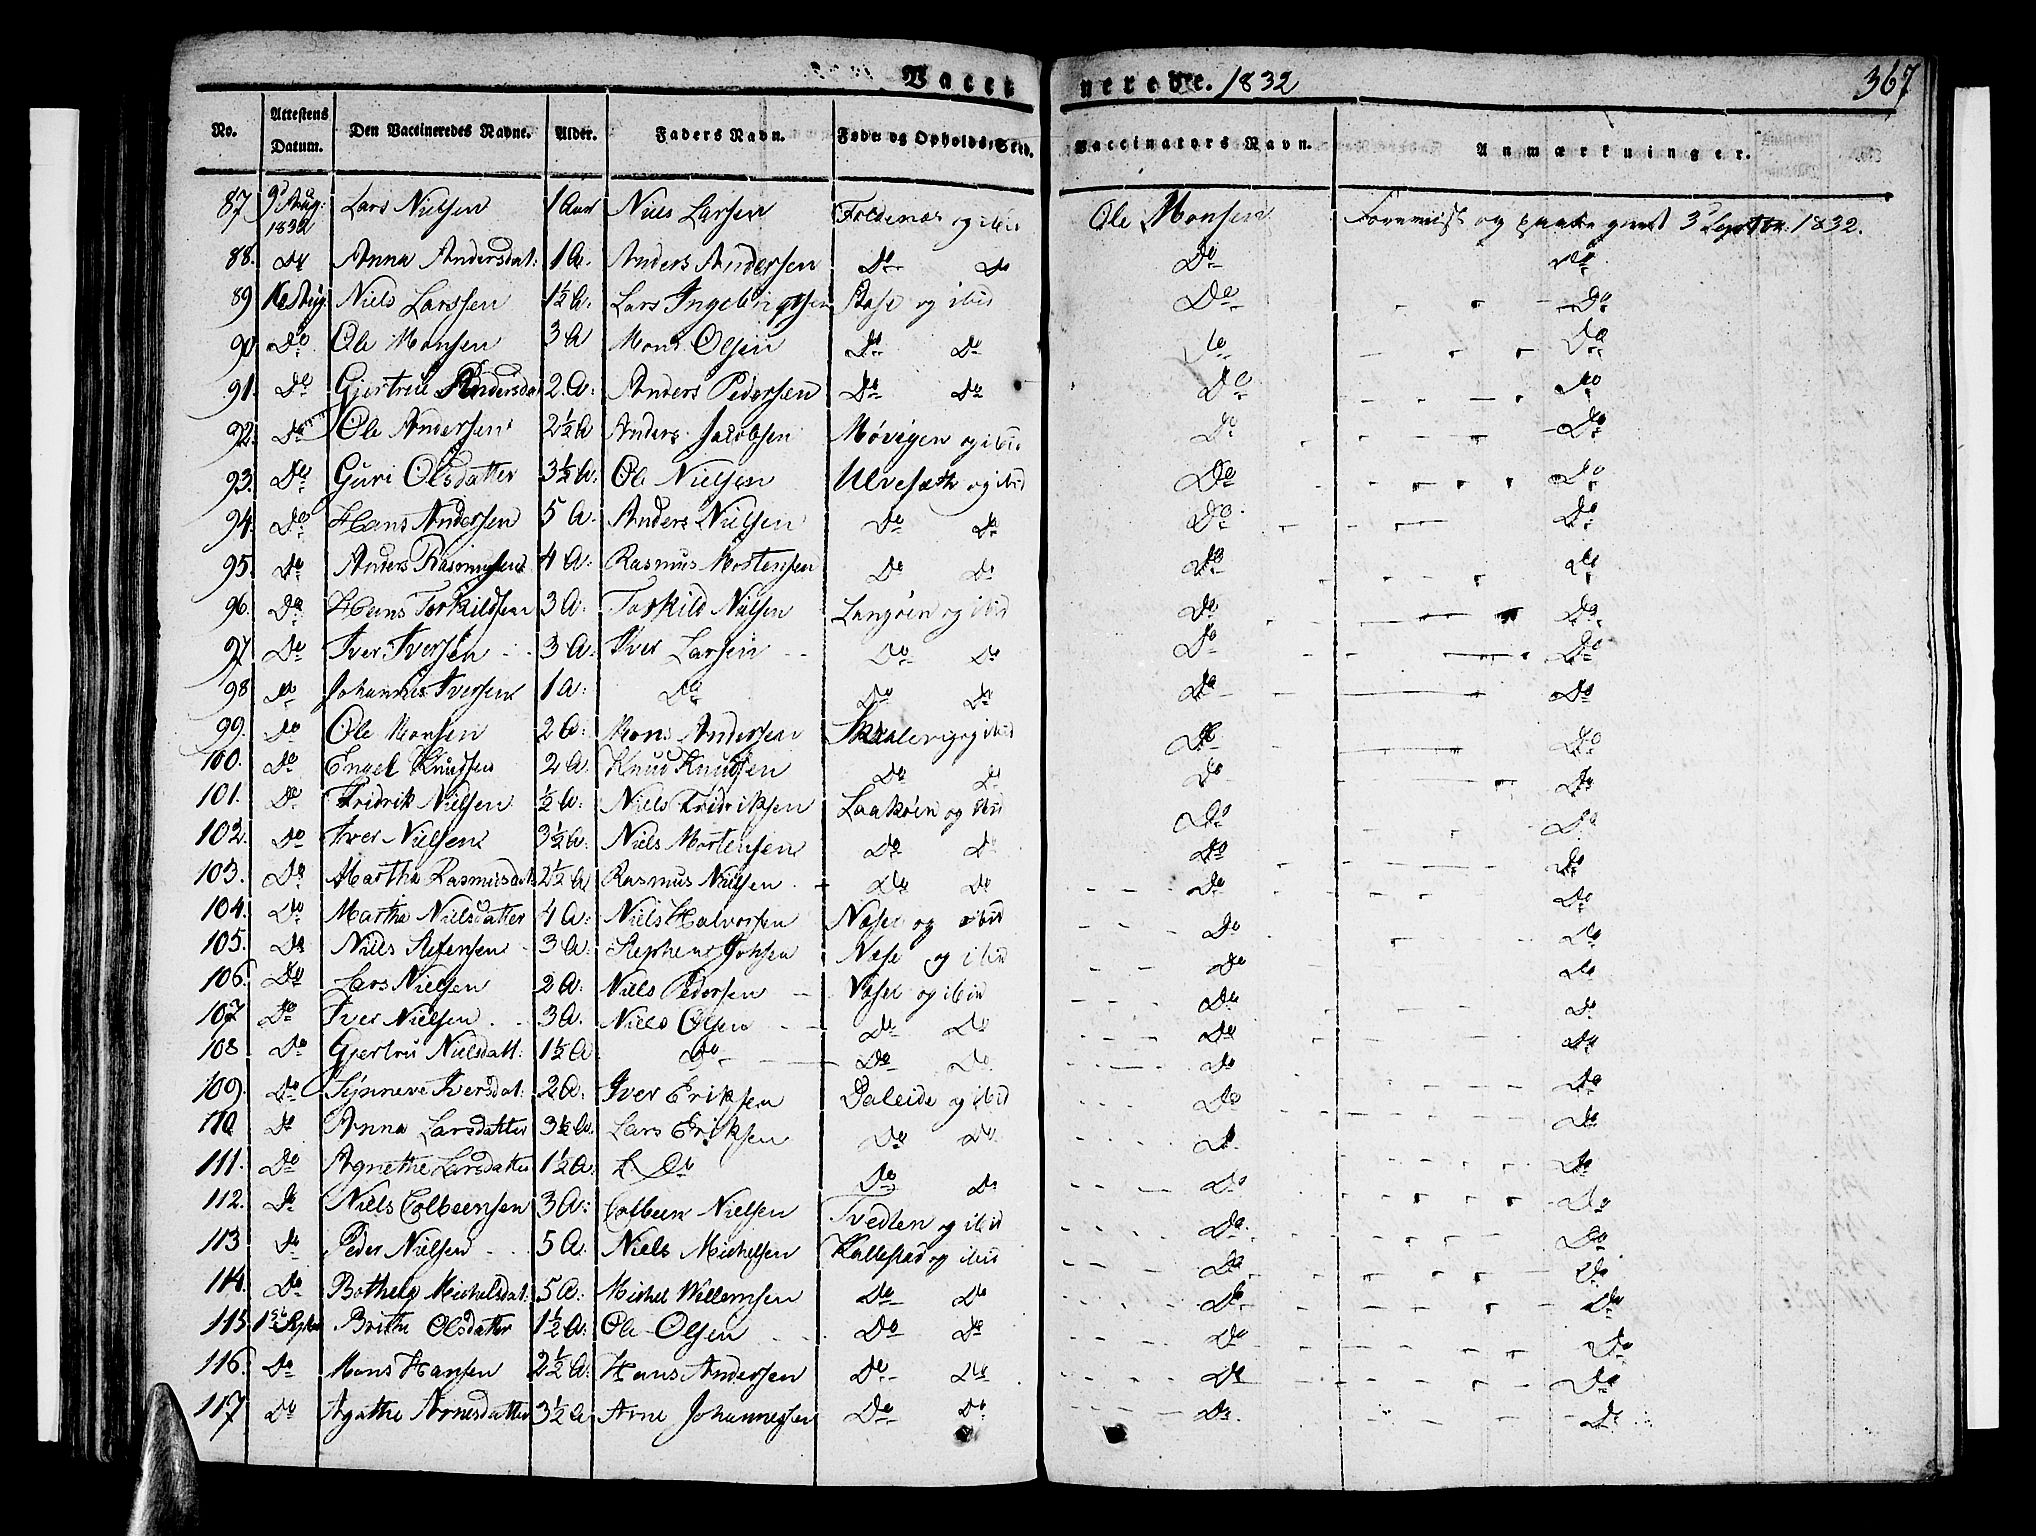 Vacci nerede. 1832 367
No. Attestens Datum. Den Vaccineredes Navne. Alder. Faders Navn. Føde- og Opholds-Sted. Vaccinators Navn. Anmærkninger.
87 9d Aug: 1832 Lars Nielsen 1 Aar Niels Larsen Foldenæs og ibid Ole Monsen Foreviist og 3d Septbr. 1832.
88. Do Anna Andersdat: 1 A. Anders Andersen Do Do Do Do
89 16 Aug. Niels Larssen 1½ A: Lars Ingebrigtsen og ibid Do Do
90. Do Ole Monsen 3 A Mons Olsen Do Do Do Do
91. Do Gjertrue Andersdat 2. A: Anders Pedersen Do Do Do Do
92. Do Ole Andersen 2½ A Anders Jacobsen Møvigen og ibid Do Do
93. Do Guri Olsdatter 3½ A: Ole Nielsen Ulvesæth og ibid Do Do
94. Do Hans Andersen 5 A: Anders Nielsen Do Do Do Do
95. Do Anders Rasmussen 4 A: Rasmus Mortensen Do Do Do Do
96. Do Hans Torkildsen 3 A: Torkild Nielsen Langøen og ibid Do Do
97 Do Iver Iversen 3 A: Iver Larsen Do Do Do Do
98 Do Johannes Iversen 1 A: Do Do Do Do Do
99. Do Ole Monsen 2 A: Mons Andersen Skalevig og ibid Do Do
100. Do Engel Knudsen 2 A: Knud Knudsen Do Do Do Do
101. Do Fridrik Nielsen ½ A: Niels Fridriksen Laakøen og ibid Do Do
102. Do Iver Nielsen 3½ A: Niels Mortensen Do Do Do Do
103. Do Martha Rasmusdat 2½ A Rasmus Nielsen Do Do Do Do
104. Do Martha Nielsdatter 4 A: Niels Halvorsen og ibid Do Do
105. Do Niels Stefensen 3 A: Stephen Johsen og ibid Do Do
106. Do Lars Nielsen 2 A: Niels Pedersen og ibid Do Do
107 Do Iver Nielsen 3 A. Niels Olsen Do Do Do Do
108 Do Gjertru Nielsdatt: 1½ A Do Do Do Do Do
109. Do Synneve Iversdat: 2 A: Iver Eriksen Daleide og ibid Do Do
110 Do Anna Larsdatter 3½ A. Lars Eriksen Do Do Do Do
111. Do Agnethe Larsdatter 1½ A: L. Do Do Do Do Do
112. Do Niels Colbeensen 3 A: Colbeen Nielsen Tvedten og ibid Do Do
113 Do Peder Nielsen 5 A: Niels Michelsen Kallestad og ibid Do Do
114. Do Bothele Michelsdat. 5 A: Michel Willemsen Do Do Do Do
115. 1ste Septbr Brithe Olsdatter 1½ A: Ole Olsen Do Do Do Do
116. Do Mons Hansen 2½ A: Hans Andersen Do Do Do Do
117 Do Agathe Arnesdatter 3½ A Arne Johannessen Do Do Do Do